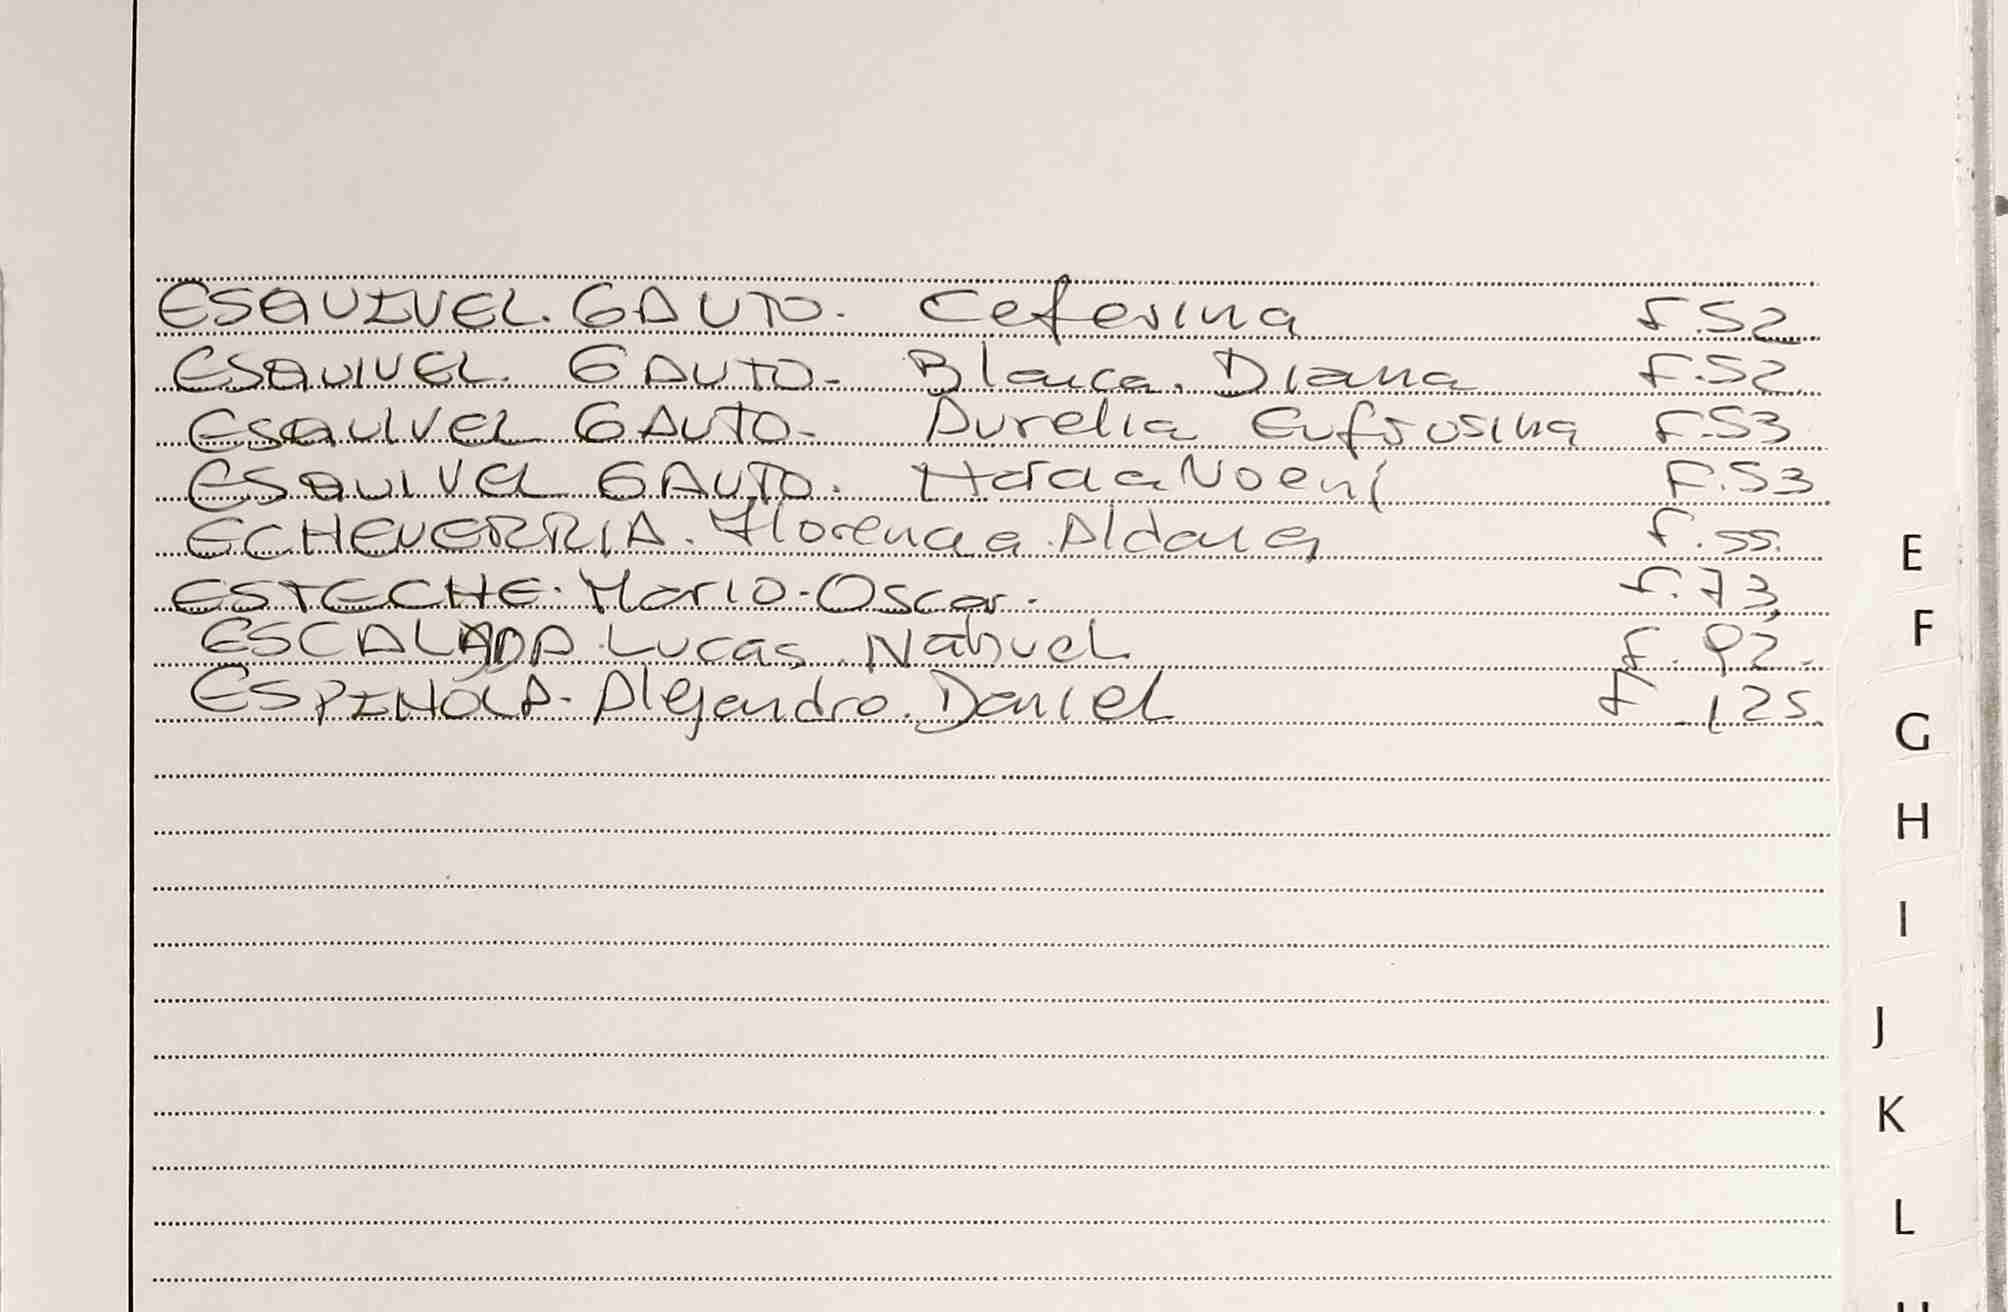 ESQUIVEL. GAUTO. Ceferina F.52
ESQUIVEL. GAUTO. Blanca. Diana F.52
ESQUIVEL GAUTO. Aurelia Eufrosina F.53
ESQUIVEL GAUTO. Noemí F.53
ECHEVERRIA. Florencia Aldana F.55.
ESTECHE. Mario. Oscar. F.73
ESCALADA. Lucas Nahuel F.92.
ESPINOLA. Alejandro. Daniel F.125.
E
F
G
H
I
J
K
L